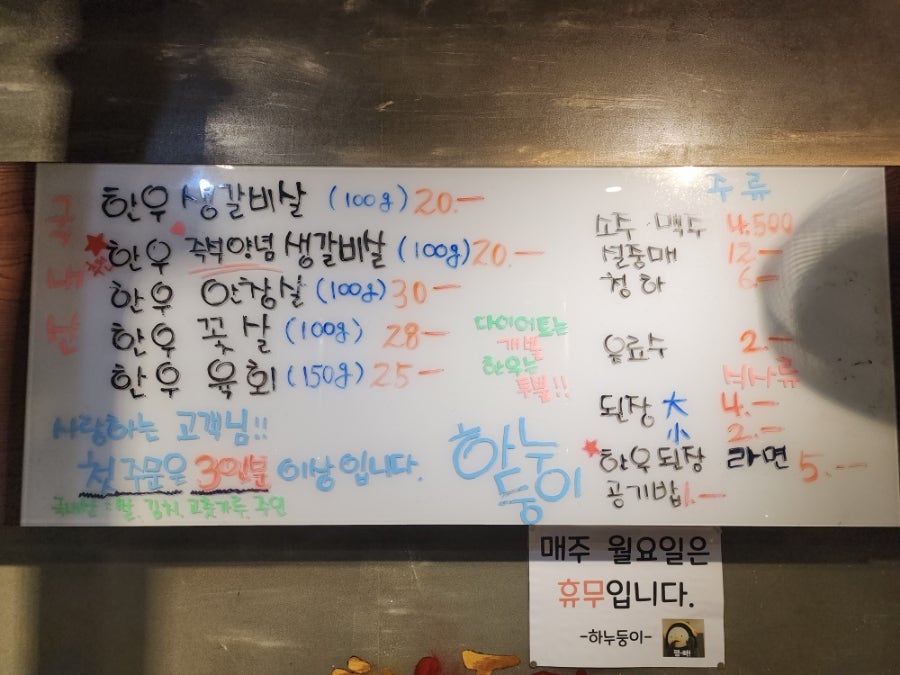 국내산
한우 생갈비살 (100g) 20.-
한우 즉석양념 생갈비살 (100g) 20.-
한우 안창살 (100g) 30-
한우 꽃살 (100g) 28-
한우 육회 (150g) 25-
다이어트는
개뿔
한우는
투뿔!!
사랑하는 고객님!!
첫 주문은 3인분 이상 입니다.
국내산 : 쌀, 김치, 고춧가루, 주먹
하누
둥이
주류
소주·맥주 4,500
설중매 12.-
청하 6.-
음료수 2.-
식사류
된장 大 4.-
小 2.-
한우된장 라면 5.--
공기밥 1.-
매주 월요일은
휴무입니다.
-하누둥이-